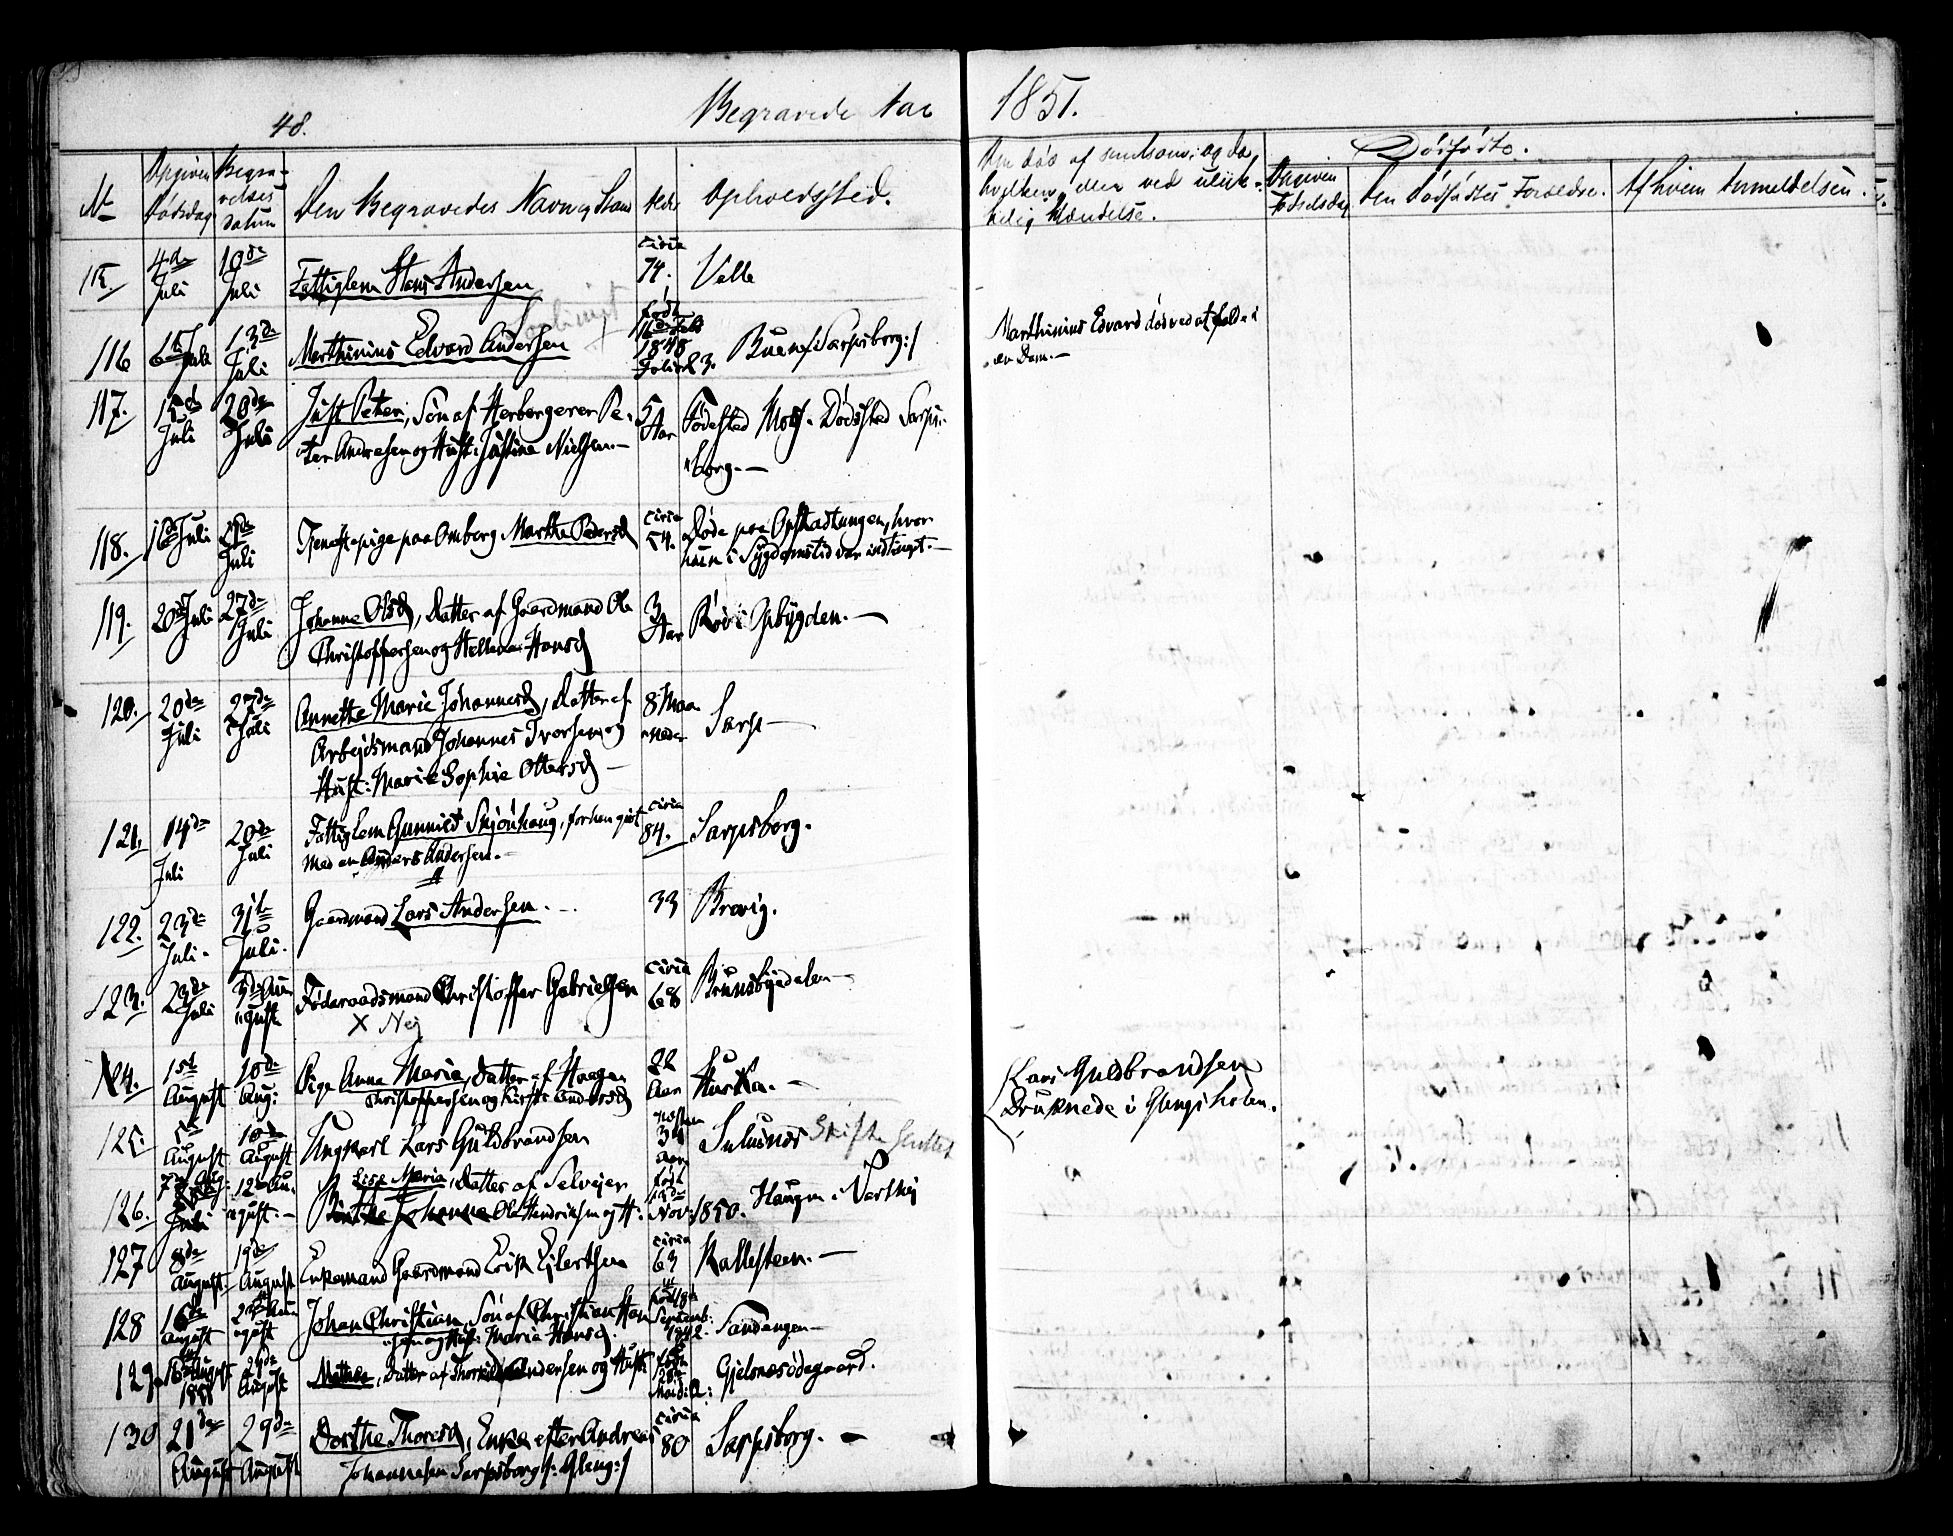 48.
Begravede Aar 1851.
No
Opgiven Dødsdag
Begravelses Datum
Den Begravedes Navn og Stand
Alder
Opholdssted.
Døde af smitsom
den ved ulykkelig Hændelse.
Dødfødte.
Opgiven Fødselsdag
Den Dødfødtes Forældre.
Af hvem Anmeldelsen
115. 4de Juli 10de Juli Fattiglem Hans Andersen circa 74. Valle
116 Juli 13de Juli Marthinius Edvard Andersen født 16de Feb 1848 Buen /: Sarpsborg :/
Marthinius Edvard døde ved at falde i
en Dam.-
117. 15de Juli 20de Juli Just Peter, Søn af Herbergerer Pe- 5 Aar Fødested Moss. Dødssted Sarps-
ter Andresen og Hust: Justine Nielsen.- borg.-
118. 16de Juli Juli Tjenestepige paa Omberg Marthe Pedersd circa 54. Døde paa Opstadtangen, hvor
hun i Sygdomstid var indlagt.-
119. 20de Juli 27de Juli Johanne Olsd, Datter af Gaardmand Ole 3 Aar Rød i Opbygden.-
Christophersen og Hellene Hansd
120. 20de Juli 27de Juli Annette Marie Johannesd, Datter af 8 Maa- neder Sarp-
Arbejdsmand Johannes Iversen og
Hust: Marie Sophie Ottersd -
121. 14de Juli 20de Juli Fattiglem Gunnild Skjønhaug, forhen gift circa 84. Sarpsborg.
med en Anders Andersen.-
122. 23de Juli. 31te Juli. Gaardmand Lars Andersen. 33 Brevig.
123. 23de Juli August Føderaadsmand Christoffer Gabrielsen circa 68 Brunsbydalen-
X Nej
124. 1st August 10de Aug: Pige Anna Maria, Datter af Haagen 22 Aar Hurka.-
Christophersen og Kirsti Andersd
125. August 10de August Ungkarl Lars Guldbrandsen næsten 34 Aar
Lars Guldbrandsen
Druknede i Glengshølen.
126. 7de Aug: Juli 12te August.- Lise Maria, Datter af Selveier født Nov: 1850. Haugen i Varteig
Johanne Ole Hendriksen og H:
127 8de August. 19de August Enkemand Gaardmand Erik Eilertsen circa 63 Kallesteen.-
128 16de August August Johan Christian, Søn af Christian Han- født 18de Septemb: Sandengen-
sen og Hust: Maria Hansd.
129 August 1851 24de August Mathea, Datter af Thorkild Andersen og Hust: født Gjelsnæsødegaard.
130 21de August 29de August Dorthe Thoresd, Enke efter Andreas circa 80 Sarpsborg.-
Johannesen Sarpsborg /: Gleng :/